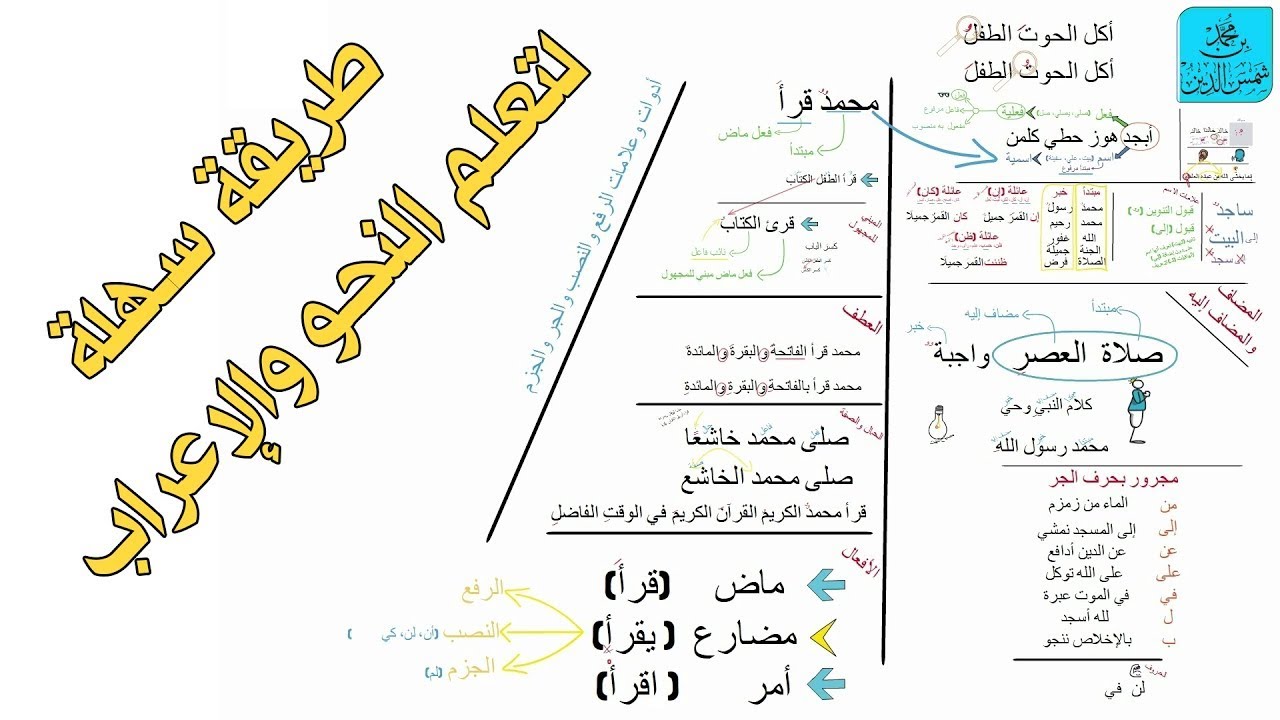 طريقة سهلة
لتعلم النحو والإعراب
بن محمد
شمس الدين
أكل الحوتَ الطفلُ
أكل الحوتُ الطفلَ
فعل (صلى، يصلي، صل) فعلية
فعل
فاعل مرفوع
مفعول به منصوب
أبجد هوز حطي كلمن
اسم (بيت، علي، سفينة) اسمية
مبتدأ مرفوع
ساجد
إلى البيت
إلى سجد
قبول التنوين
قبول (إلى)
مبتدأ خبر
محمدٌ رسولٌ
محمد رحيم
الله غفور
الجنة جميلة
الصلاة فرض
عائلة (إن)
إن القمرَ جميلٌ
عائلة (كان)
كان القمرُ جميلًا
عائلة (ظن)
ظننت القمر جميلا
المضاف
و المضاف إليه
مبتدأ
مضاف إليه
خبر
صلاة العصرِ واجبة
كلام النبي وحي
محمد رسول اللهِ
مجرور بحرف الجر
من الماء من زمزم
إلى إلى المسجد نمشي
عن عن الدين أدافع
على على الله توكل
في في الموت عبرة
ل لله أسجد
ب بالإخلاص ننجو
لن في
محمدٌ قرأَ
فعل ماض
مبتدأ
قرأ الطفل الكتاب
المبني
للمجهول
قرئ الكتابُ
كسر الباب
نائب فاعل
فعل ماض مبني للمجهول
العطف
محمد قرأ الفاتحةَ والبقرةَ والمائدةَ
محمد قرأ بالفاتحةِ والبقرةِ والمائدةِ
الحال والصفة
صلى محمد خاشعًا
صلى محمد الخاشع
قرأ محمدٌ الكريمُ القرآنَ الكريمَ في الوقتِ الفاضلِ
الأفعال
ماض (قرأَ)
مضارع (يقرأ)
أمر (اقرأْ)
الرفع
النصب (أن، لن، كي )
الجزم (لم)
أدوات و علامات الرفع و النصب و الجر و الجزم